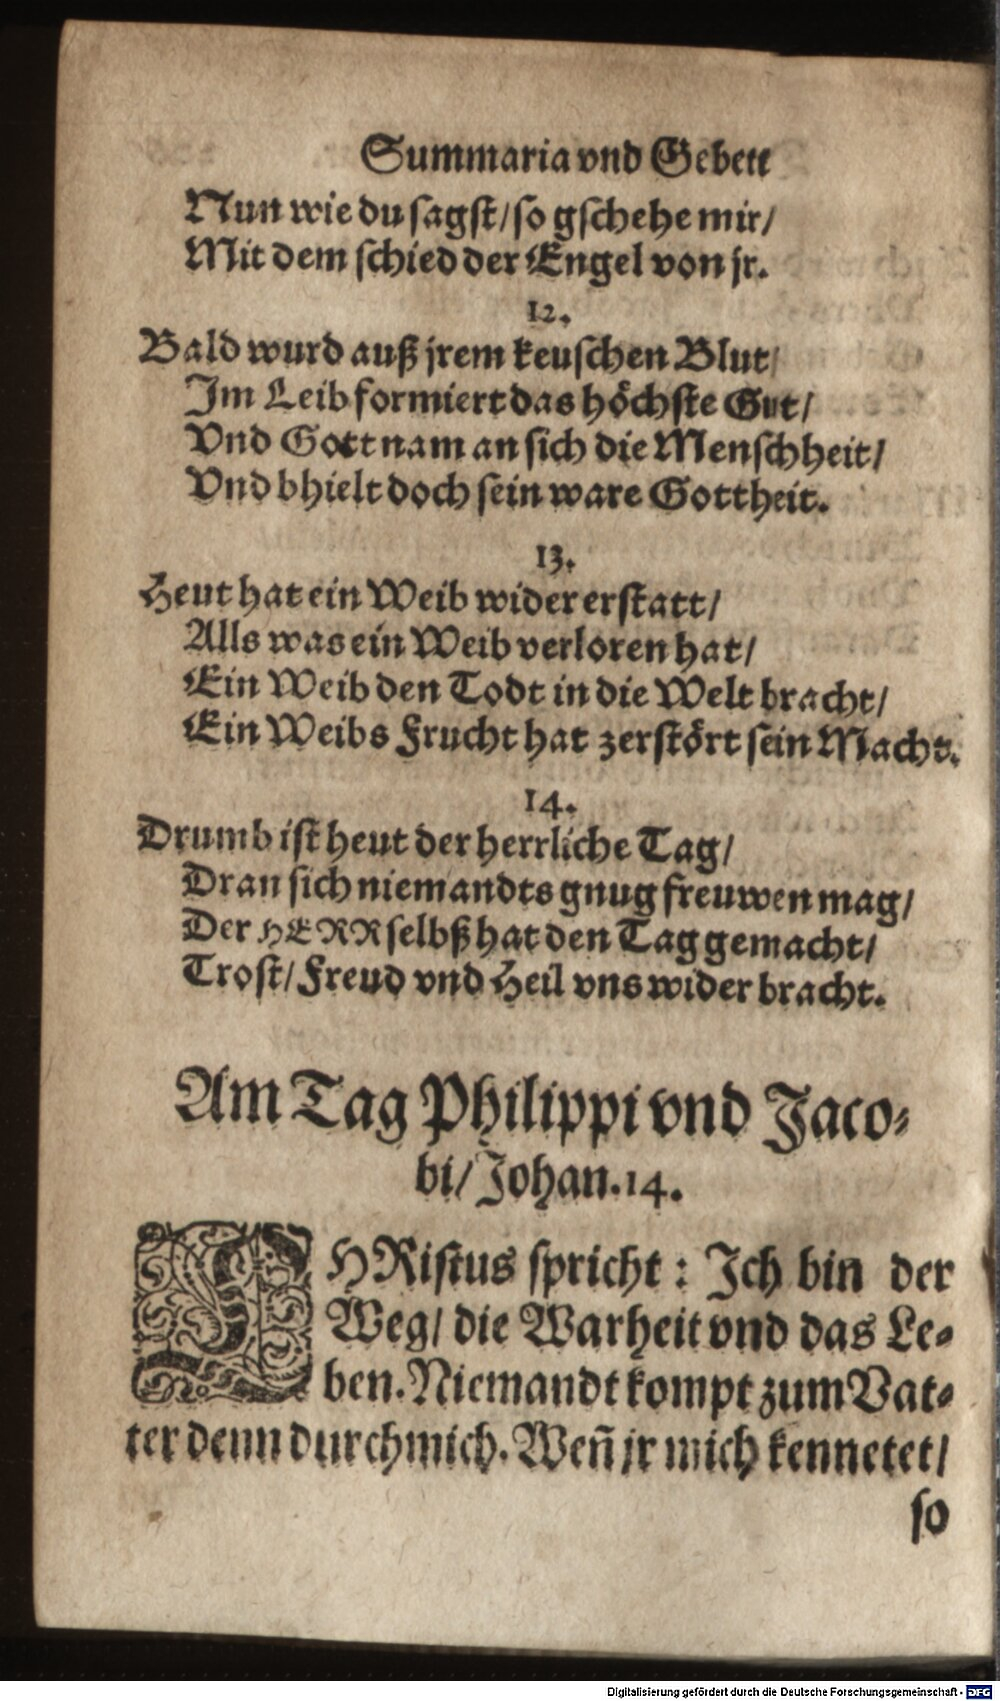 Summaria vnd Gebett
Nun wie du sagst/ so gschehe mir/
Mit dem schied der Engel von jr.
12.
Bald wurd auß jrem keuschen Blut/
Im Leib formiert das höchste Gut/
Vnd Gott nam an sich die Menschheit/
Vnd bhielt doch sein ware Gottheit.
13.
Heut hat ein Weib wider erstatt/
Alls was ein Weib verloren hat/
Ein Weib den Todt in die Welt bracht/
Ein Weibs Frucht hat zerstört sein Macht.
14.
Drumb ist heut der herrliche Tag/
Dran sich niemandts gnug freuwen mag/
Der HERR selbß hat den Tag gemacht/
Trost/ Freud vnd Heil vns wider bracht.
Am Tag Philippi vnd Jaco-
bi/ Johan. 14.
CHRistus spricht: Ich bin der
Weg/ die Warheit vnd das Le-
ben. Niemandt kompt zum Vat-
ter denn durch mich. Weñ jr mich kennetet/
so
Digitalisierung gefördert durch die Deutsche Forschungsgemeinschaft - DFG